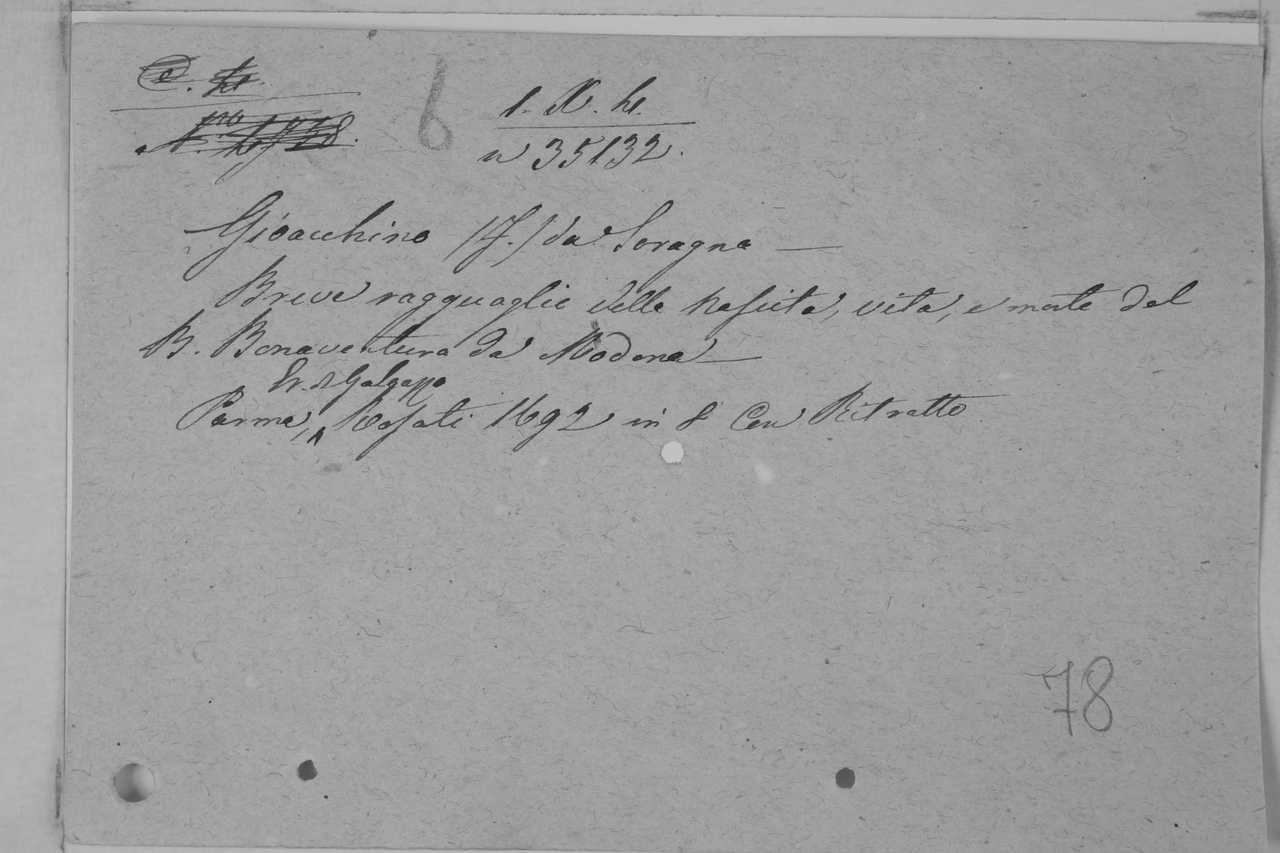 6
1. X. h.
n 35132.
Gioacchino (F.) da Soragna —
Breve ragguaglio della nascita, vita, e morte del
B. Bonaventura da Modena —
Parma, Rosati 1692 in 8 Con Ritratto
78